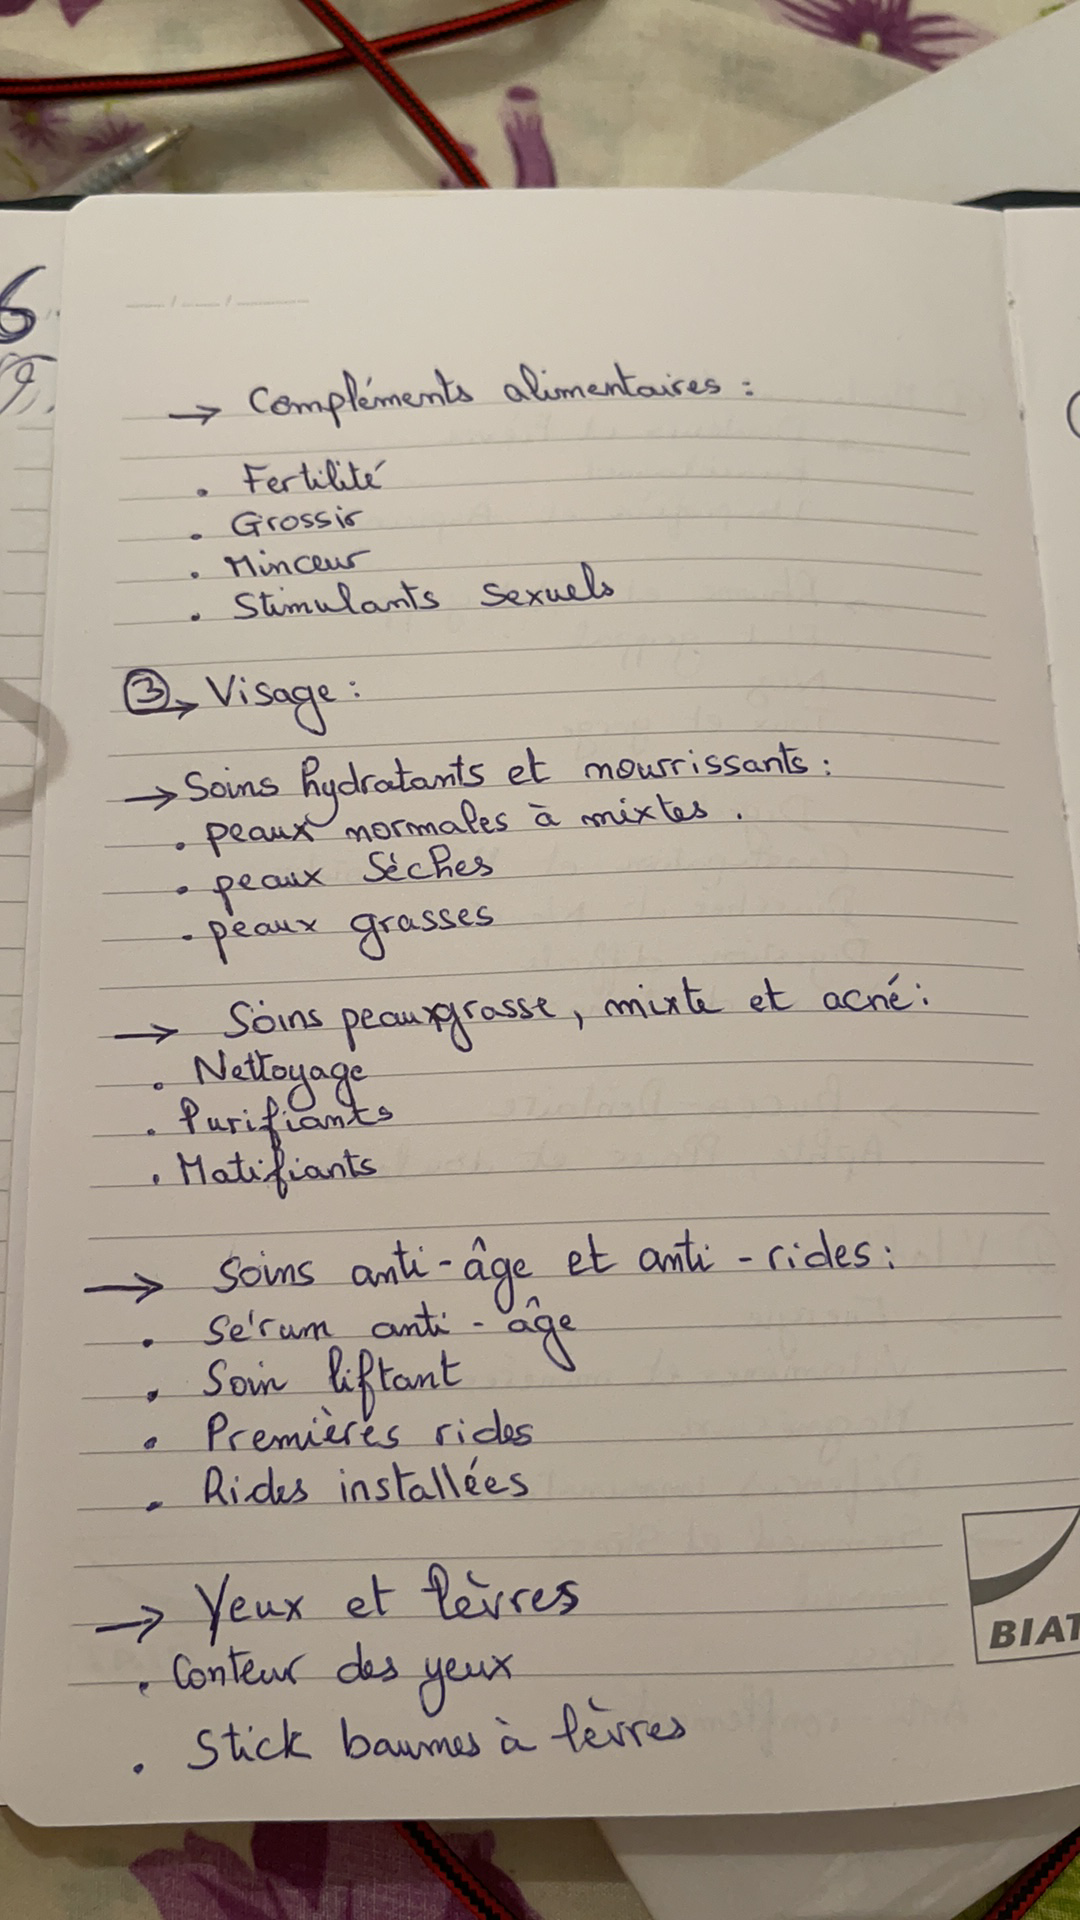 → Compléments alimentaires :
. Fertilité
. Grossir
. Minceur
. Stimulants sexuels
③→ Visage :
→ Soins hydratants et nourrissants :
. peaux normales à mixtes .
. peaux Sèches
. peaux grasses
→ Soins peaux grasse, mixte et acné :
. Nettoyage
. Purifiants
. Matifiants
→ Soins anti-âge et anti-rides :
. Sérum anti-âge
. Soin liftant
. Premières rides
. Rides installées
→ Yeux et lèvres
. Conteur des yeux
. Stick baumes à lèvres
BIAT